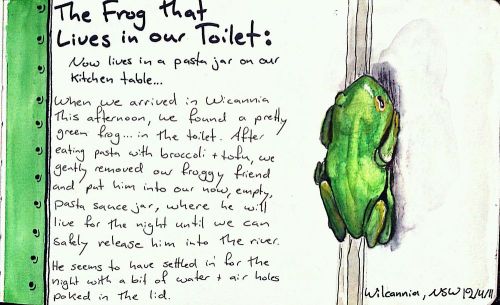 The Frog that
Lives in our Toilet:
Now lives in a pasta jar on our
kitchen table...
When we arrived in Wicannia
this afternoon, we found a pretty
green frog... in the toilet. After
eating pasta with broccoli + tofu, we
gently removed our froggy friend
and put him into our now, empty,
pasta sauce jar, where he will
live for the night until we can
safely release him into the river.
He seems to have settled in for the
night with a bit of water + air holes
poked in the lid.
Wilcannia, NSW 12/4/11